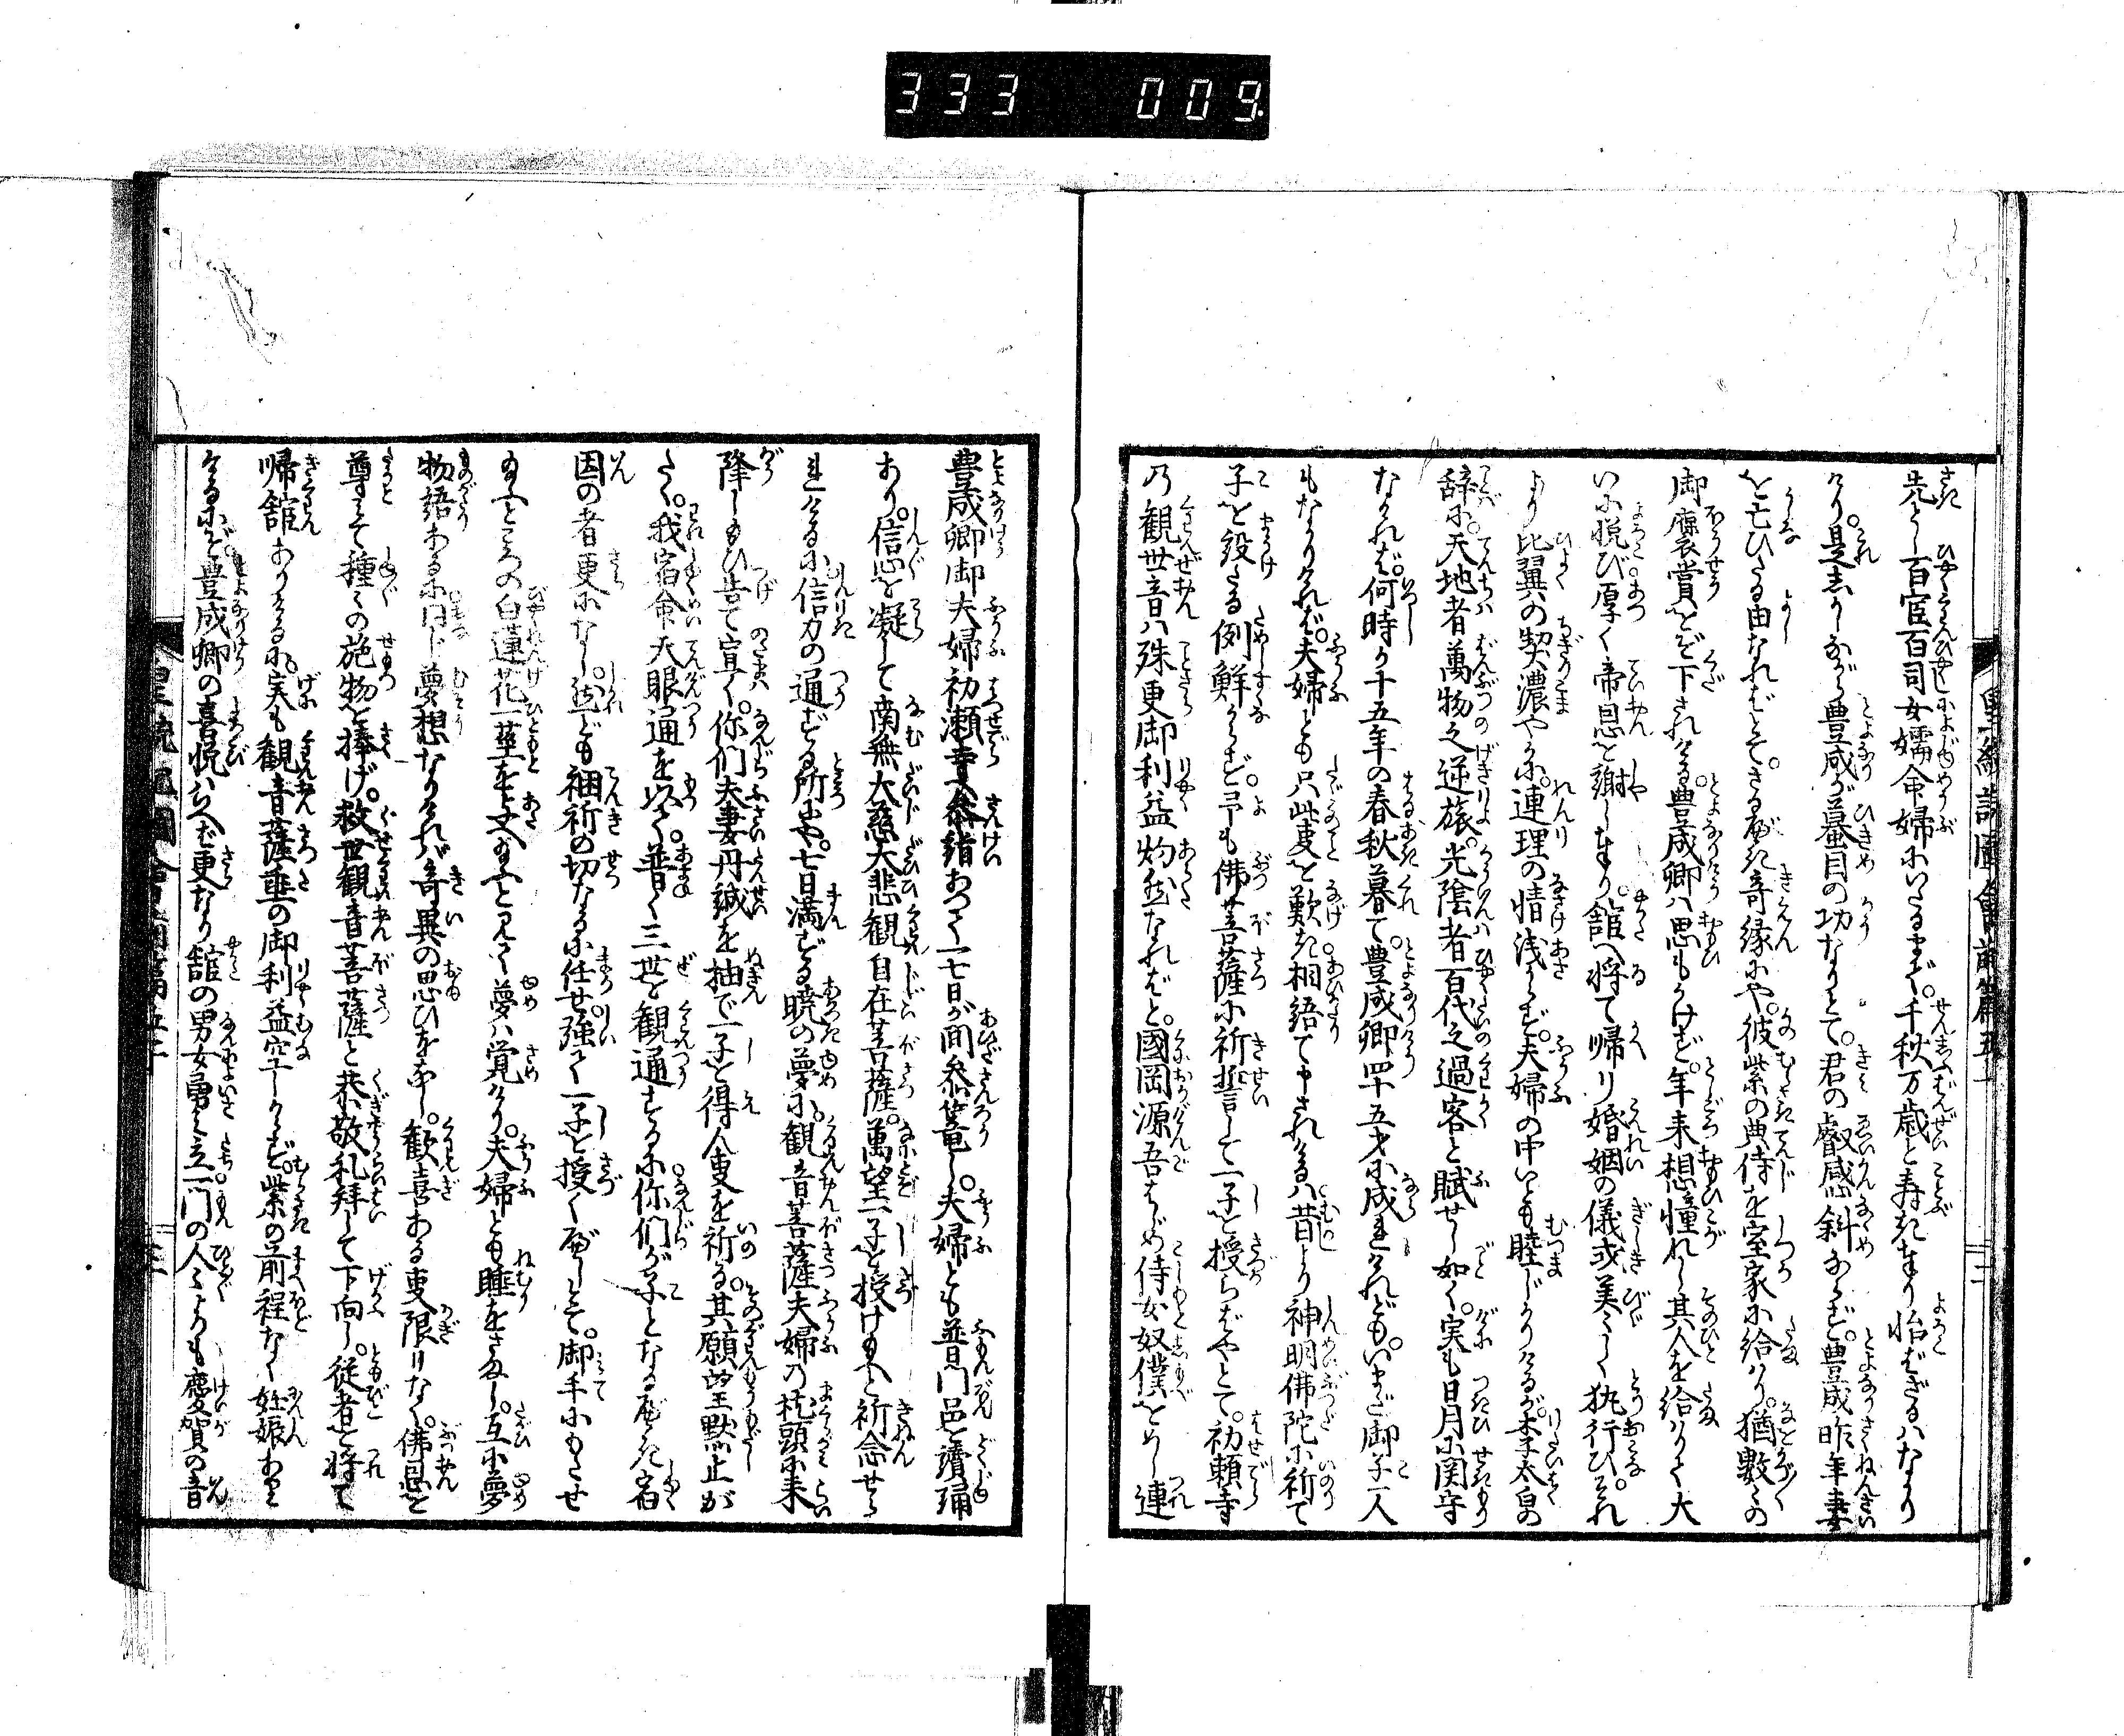 333 009.
先として百官百司女嬬命婦にいたるまで。千秋万歳と寿き奉り怡ばざるハなかり
けり。是しかしながら豊成が蟇目の功なりとて。君の叡感斜ならず。豊成昨年妻
を亡ひたる由なればとて。さるべき奇縁にや。彼紫の典侍を室家に給ハり。猶數々の
御褒賞をぞ下されける。豊成卿ハ思もかけず。年来想憧れし其人を給ハりて大
いに悦び厚く帝恩を謝し奉り。舘へ将て帰り婚姻の儀式美々しく執行ひ。それ
より比翼の契濃やかに。連理の情浅からず。夫婦の中いとも睦じかりけるが。李太白の
辞に。天地者萬物之逆旅。光陰者百代之過客と賦せし如く。実も日月に関守
なければ。何時か十五年の春秋暮て。豊成卿四十五才に成玉けれども。いまだ御子一人
もなかりければ。夫婦とも只此事を歎き相語て申されけるハ昔より神明佛陀に祈て
子を設たる例鮮からず。予も佛菩薩に祈誓して一子を授らばやとて。初瀬寺
の観世音ハ殊更御利益灼然なればと。國岡源吾はじめ侍女奴僕をめし連
豊成卿御夫婦初瀬寺へ參詣あつて一七日が間参篭し。夫婦とも普門品を讀誦
あり。信心を凝して南無大慈大悲観自在菩薩。萬望一子を授け玉へと祈念せら
れけるに信力の通ずる所にや。七日満ずる暁の夢に。観音菩薩夫婦の枕頭に来
降し玉ひ告て宣く。你們夫妻丹誠を抽で一子を得ん事を祈る。其願望黙止が
たく。我宿命天眼通を以て。普く三世を観通するに你們が子となるべき宿
因の者更になし。然ども祈の切なるに任せ強て一子を授くべしとて。御手にもたせ
玉ふところの白蓮花一莖を与へ玉ふと見て夢ハ覚けり。夫婦とも睡をさまし。互に夢
物語あるに同じ夢想なりければ奇異の思ひをなし。歓喜ある事限りなく。佛恩を
尊みて種々の施物を捧げ。救世観音菩薩と恭敬礼拝して下向し。従者を将て
帰舘ありけるに。実も観音薩埵の御利益空しからず。紫の前程なく妊娠あらせ
けるにぞ。豊成卿の喜悦ハいへば更なり舘の男女勇み立一門の人々よりも慶賀の音